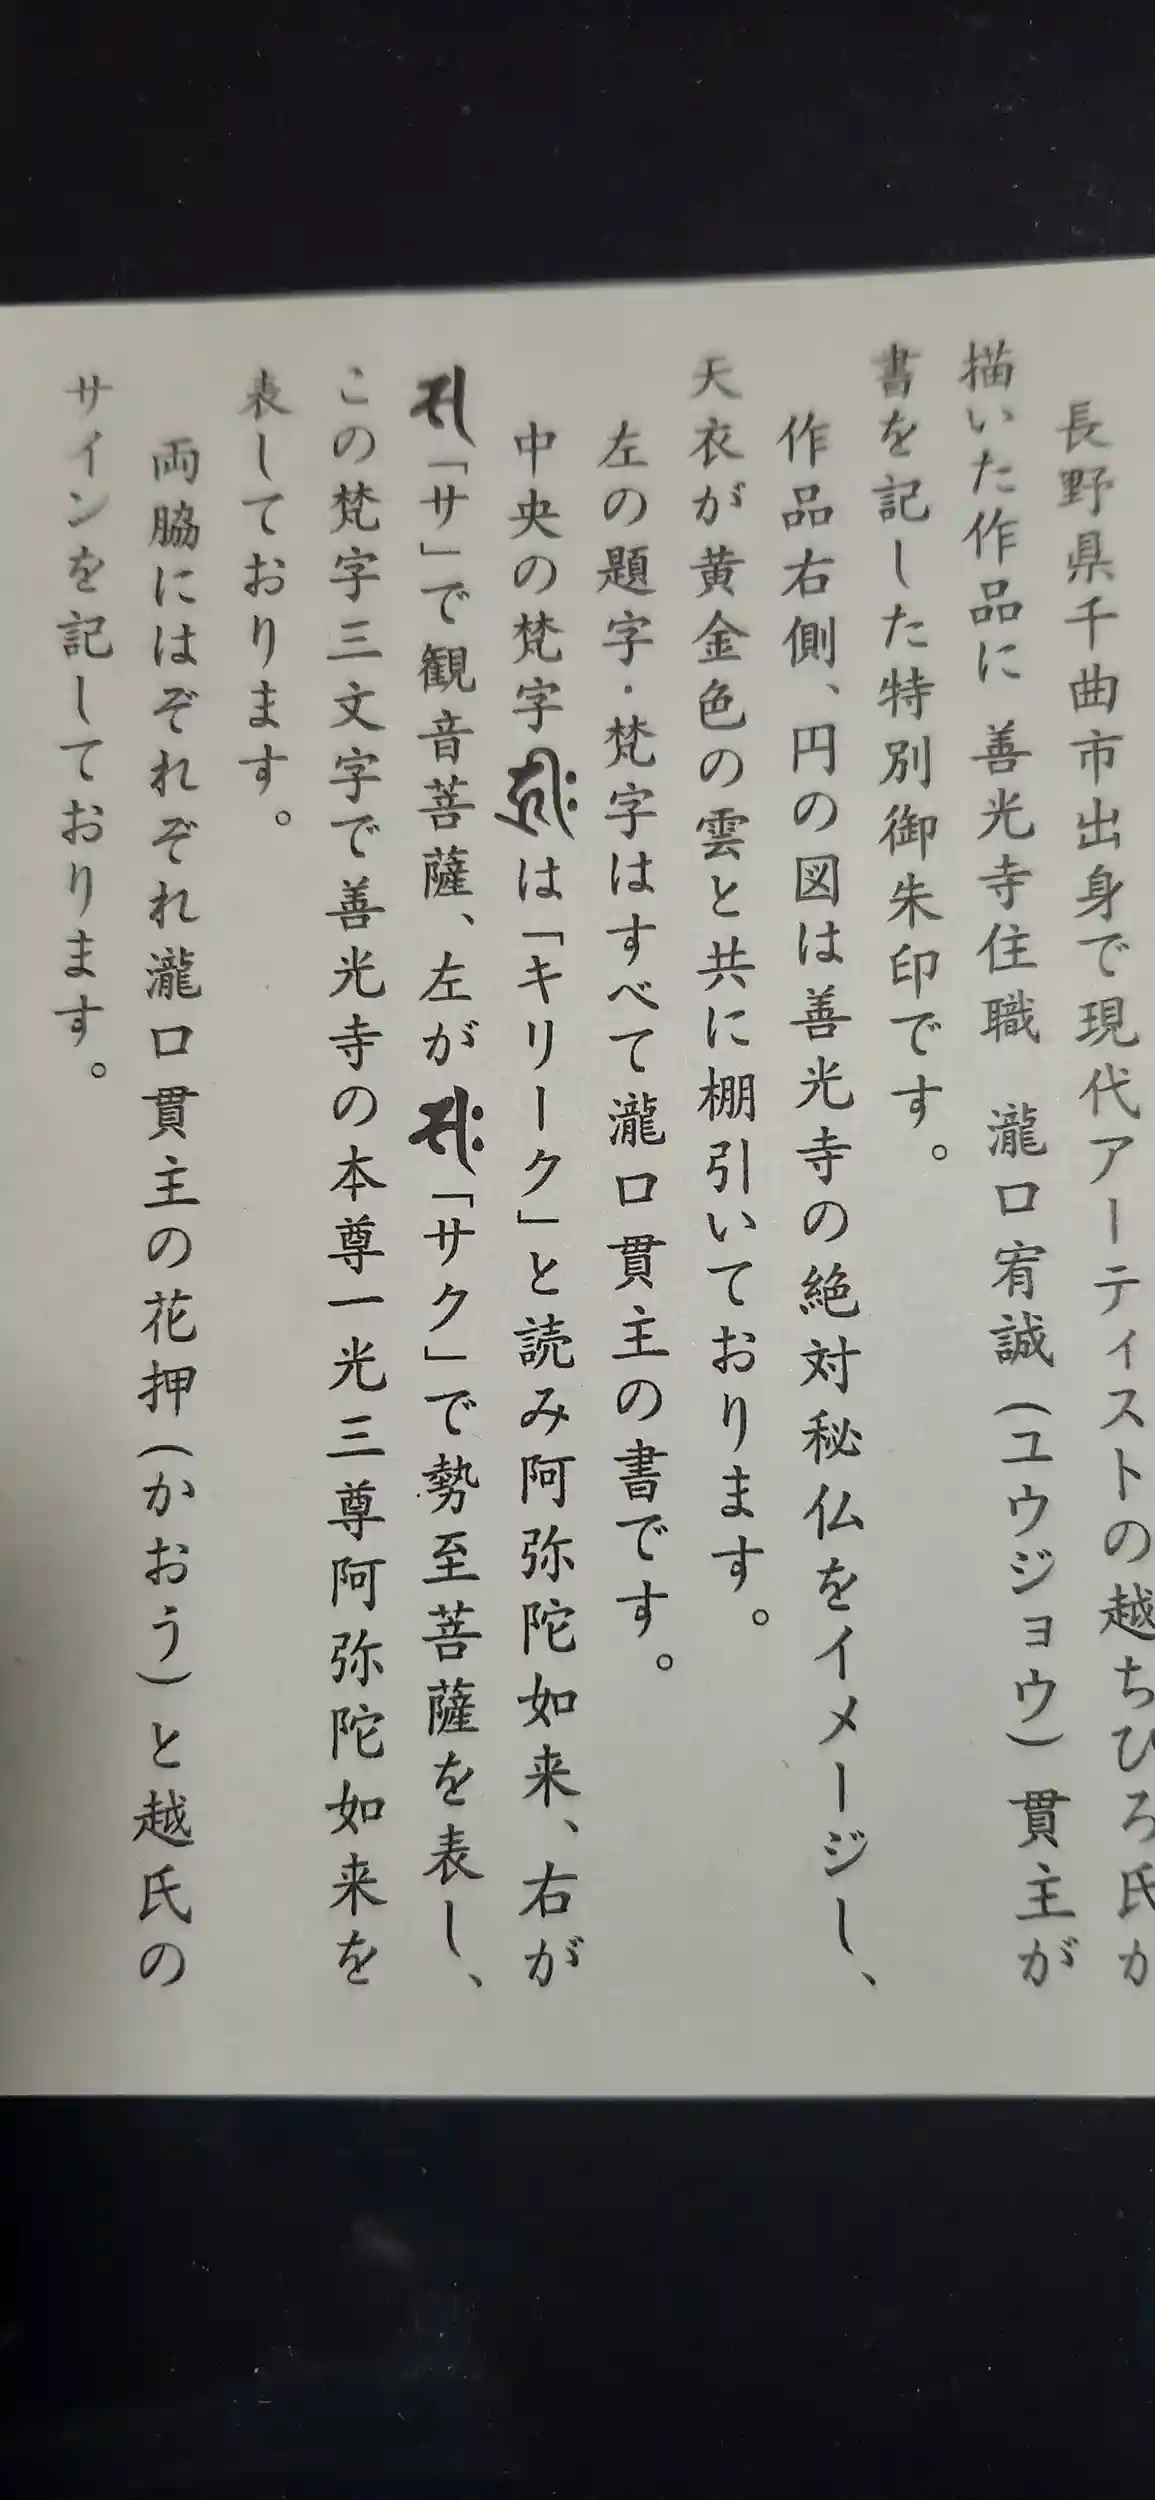 長野県千曲市出身で現代アーティストの越ちひろ氏が
描いた作品に 善光寺住職 瀧口宥誠(ユウジョウ)貫主が
書を記した特別御朱印です。
作品右側、円の図は善光寺の絶対秘仏をイメージし、
天衣が黄金色の雲と共に棚引いております。
左の題字・梵字はすべて瀧口貫主の書です。
中央の梵字 𑖮𑖿𑖨𑖱𑖾 は「キリーク」と読み阿弥陀如来、右が
𑖭 「サ」で観音菩薩、左が 𑖭𑖾 「サク」で勢至菩薩を表し、
この梵字三文字で善光寺の本尊一光三尊阿弥陀如来を
表しております。
両脇にはぞれぞれ瀧口貫主の花押(かおう)と越氏の
サインを記しております。